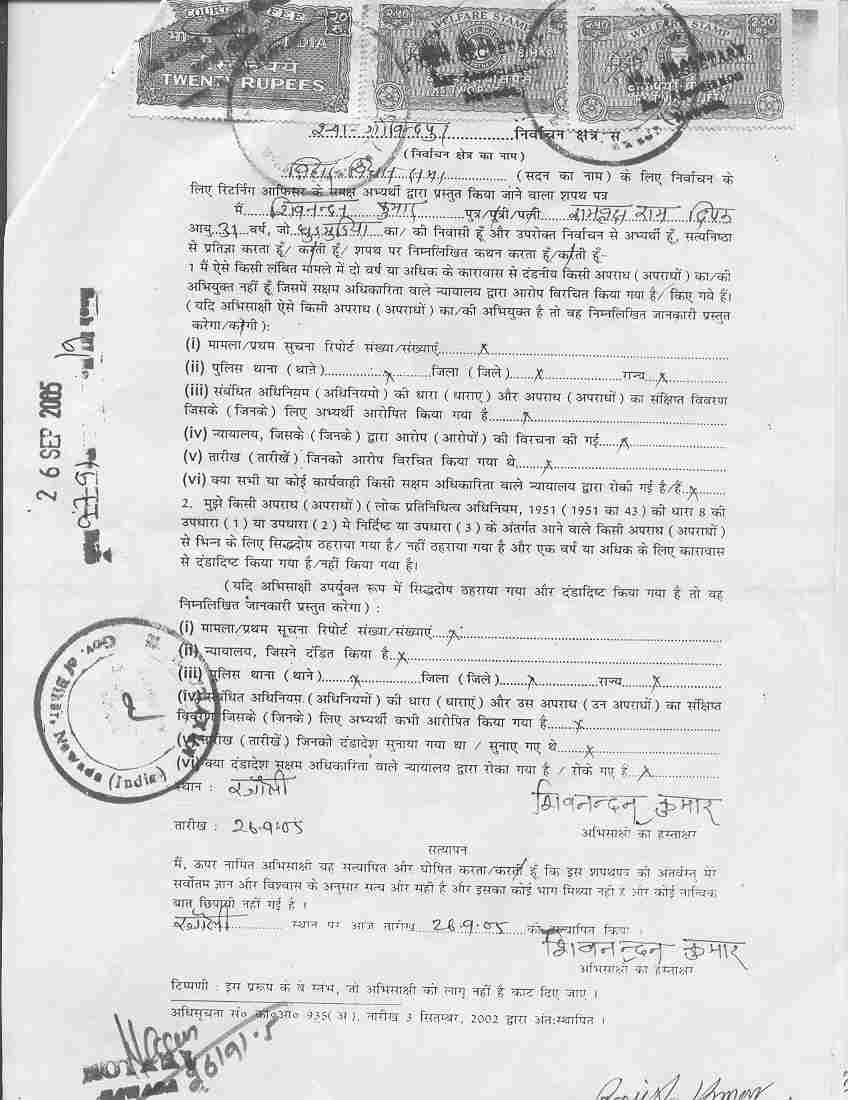 COURT FEE
भारत INDIA
TWENTY RUPEES
WELFARE STAMP
BIHAR
WELFARE STAMP
गोविन्दपुर निर्वाचन क्षेत्र से
(निर्वाचन क्षेत्र का नाम)
बिहार विधान सभा (सदन का नाम) के लिए निर्वाचन के
लिए रिटर्निंग आफिसर के समक्ष अभ्यर्थी द्वारा प्रस्तुत किया जाने वाला शपथ पत्र
मैं......शिवनन्दन कुमार......पुत्र/पुत्री/पत्नी
आयु..31..वर्ष, जो का/ की निवासी हूँ और उपरोक्त निर्वाचन से अभ्यर्थी हूँ, सत्यनिष्ठा
से प्रतिज्ञा करता हूँ/ करती हूँ/ शपथ पर निम्नलिखित कथन करता हूँ/करती हूँ-
1 मैं ऐसे किसी लंबित मामले में दो वर्ष या अधिक के कारावास से दंडनीय किसी अपराध (अपराधों) का/की
अभियुक्त नहीं हूँ जिसमें सक्षम अधिकारिता वाले न्यायालय द्वारा आरोप विरचित किया गया है/ किए गये हैं।
(यदि अभिसाक्षी ऐसे किसी अपराध (अपराधों) का/की अभियुक्त है तो वह निम्नलिखित जानकारी प्रस्तुत
करेगा/करेगी):
(i) मामला/प्रथम सुचना रिपोर्ट संख्या/संख्याएं......x......
(ii) पुलिस थाना (थाने)......x......जिला (जिले)......x......राज्य...x...
(iii) संबंधित अधिनियम (अधिनियमो) की धारा (धाराए) और अपराध (अपराधों) का संक्षिप्त विवरण
जिसके (जिनके) लिए अभ्यर्थी आरोपित किया गया है......x......
(iv) न्यायालय, जिसके (जिनके) द्वारा आरोप (आरोपों) की विरचना की गई...x......
(v) तारीख (तारीखें) जिनको आरोप विरचित किया गया थे......x......
(vi) क्या सभी या कोई कार्यवाही किसी सक्षम अधिकारिता वाले न्यायालय द्वारा रोकी गई है/हैं..x......
2. मुझे किसी अपराध (अपराधों) (लोक प्रतिनिधित्व अधिनियम, 1951 (1951 का 43) की धारा 8 की
उपधारा (1) या उपधारा (2) मे निर्दिष्ट या उपधारा (3) के अंतर्गत आने वाले किसी अपराध (अपराधों)
से भिन्न के लिए सिद्धदोष ठहराया गया है/ नहीं ठहराया गया है और एक वर्ष या अधिक के लिए कारावास
से दंडादिष्ट किया गया है/नहीं किया गया है।
(यदि अभिसाक्षी उपर्युक्त रूप में सिद्धदोष ठहराया गया और दंडादिष्ट किया गया है तो वह
निम्नलिखित जानकारी प्रस्तुत करेगा) :
(i) मामला/प्रथम सूचना रिपोर्ट संख्या/संख्याएं...x......
(ii) न्यायालय, जिसने दंडित किया है..x......
(iii) पुलिस थाना (थाने)......x......जिला (जिले)......x......राज्य......x......
(iv) संबंधित अधिनियम (अधिनियमों) की धारा (धाराएं) और उस अपराध (उन अपराधों) का संक्षिप्त
विवरण जिसके (जिनके) लिए अभ्यर्थी कभी आरोपित किया गया है......x......
(v) तारीख (तारीखें) जिनको दंडादेश सुनाया गया था / सुनाए गए थे......x......
(vi) क्या दंडादेश सक्षम अधिकारिता वाले न्यायालय द्वारा रोका गया है / रोके गए है...x......
स्थान : रजौली
शिवनन्दन कुमार
तारीख : 26.9.05
अभिसाक्षी का हस्ताक्षर
सत्यापन
मैं, ऊपर नामित अभिसाक्षी यह सत्यापित और घोषित करता/करती हूँ कि इस शपथपत्र की अंतर्वस्तु मेरे
सर्वोतम ज्ञान और विश्वास के अनुसार सत्य और सही है और इसका कोई भाग मिथ्या नही है और कोई तात्विक
बात छिपायी नहीं गई है ।
रजौली......स्थान पर आज तारीख...26.9.05......को सत्यापित किया ।
शिवनन्दन कुमार
अभिसाक्षी का हस्ताक्षर
टिप्पणी : इस प्ररूप के वे स्तंभ, जो अभिसाक्षी को लागू नहीं है काट दिए जाए ।
अधिसूचना सं० का०आ० 935(अ), तारीख 3 सितम्बर, 2002 द्वारा अंत:स्थापित ।
26 SEP 2005
Gov. of Bihar, Nawada (India)
NOTARY
26/9/05